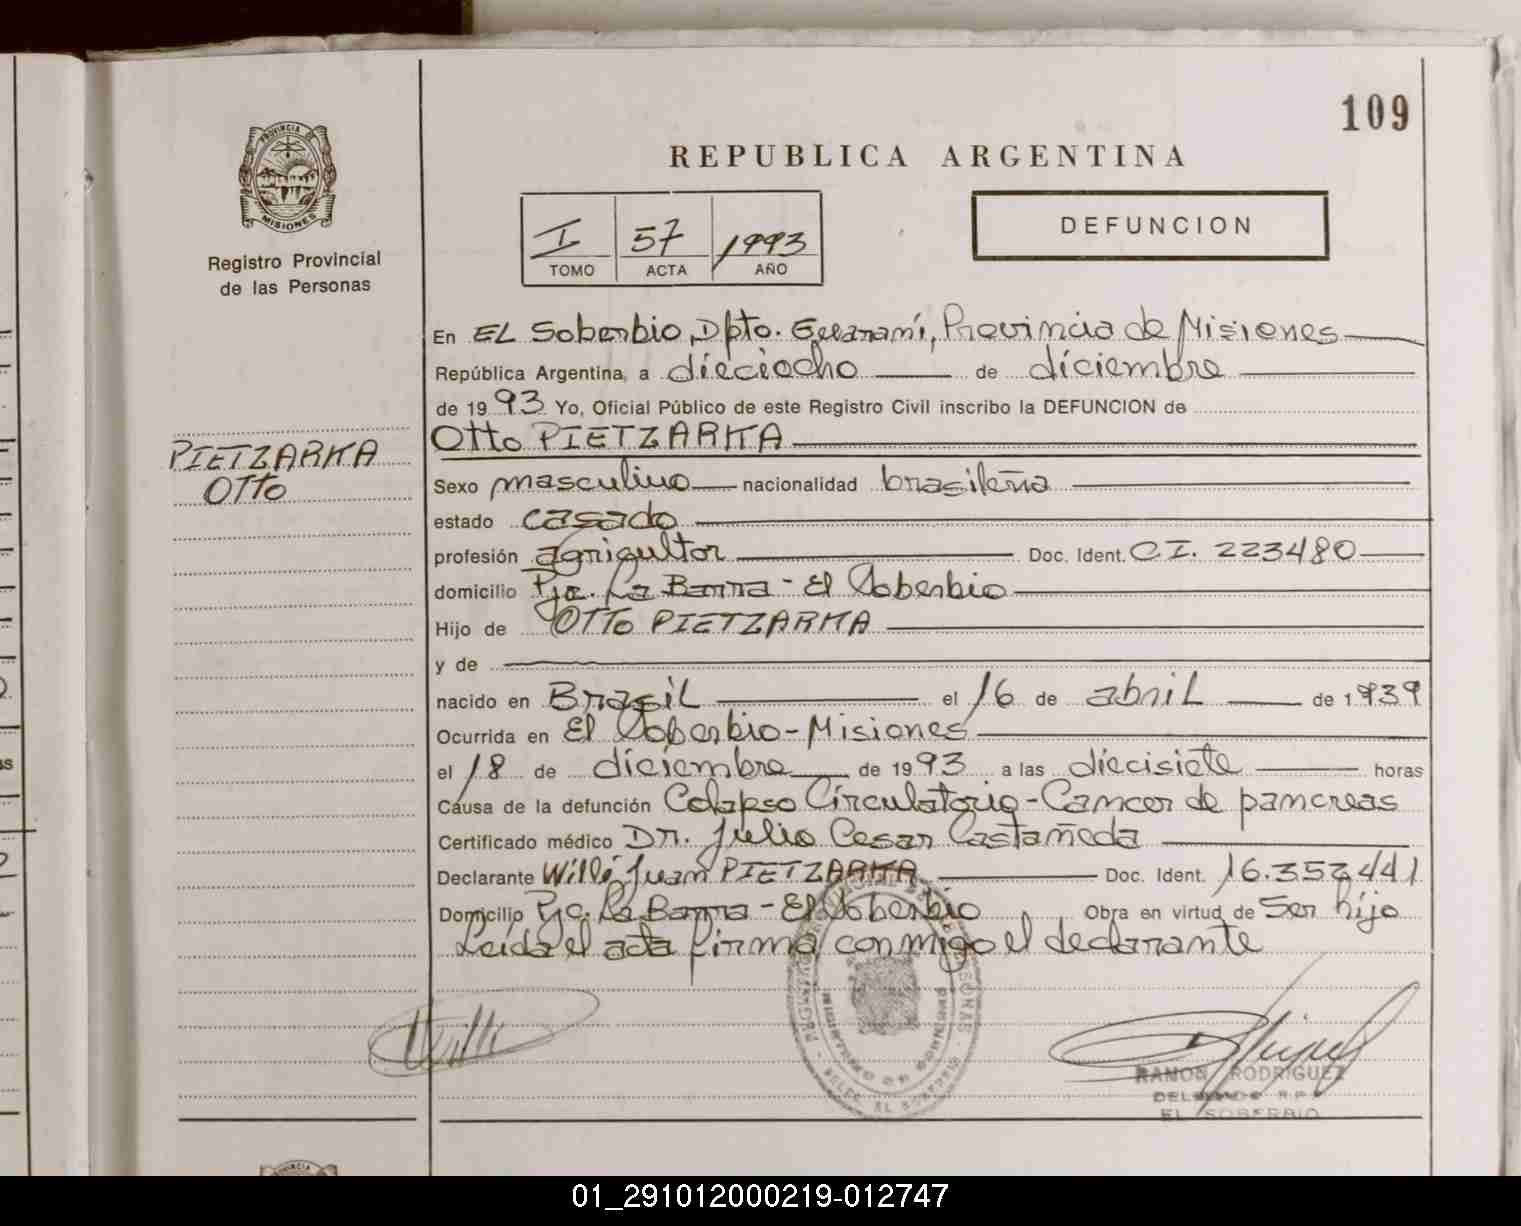 109
REPUBLICA ARGENTINA
PROVINCIA DE
MISIONES
Registro Provincial
de las Personas
I 57 1993
TOMO ACTA AÑO
DEFUNCION
En EL Soberbio, Dpto. Guaraní, Provincia de Misiones
República Argentina, a dieciocho de diciembre
de 1993 Yo, Oficial Público de este Registro Civil inscribo la DEFUNCION de
PIETZARKA
Otto
Otto PIETZARKA
Sexo masculino nacionalidad brasileña
estado casado
profesión agricultor Doc. Ident. C.I. 223480
domicilio Pje. La Barra - El Soberbio
Hijo de OTTO PIETZARKA
y de
nacido en BrasiL el 16 de abriL de 1939
Ocurrida en El Soberbio - Misiones
el 18 de diciembre de 1993 a las diecisiete horas
Causa de la defunción Colapso Circulatorio - Cancer de pancreas
Certificado médico Dr. Julio Cesar Castañeda
Declarante Willi Juan PIETZARKA Doc. Ident. 16.352.441
Domicilio Pje. La Barra - El Soberbio Obra en virtud de Ser hijo
Leida el acta firma conmigo el declarante
RAMON RODRIGUEZ
DELEGADO R.P.
EL SOBERBIO
PROVINCIA
01_291012000219-012747